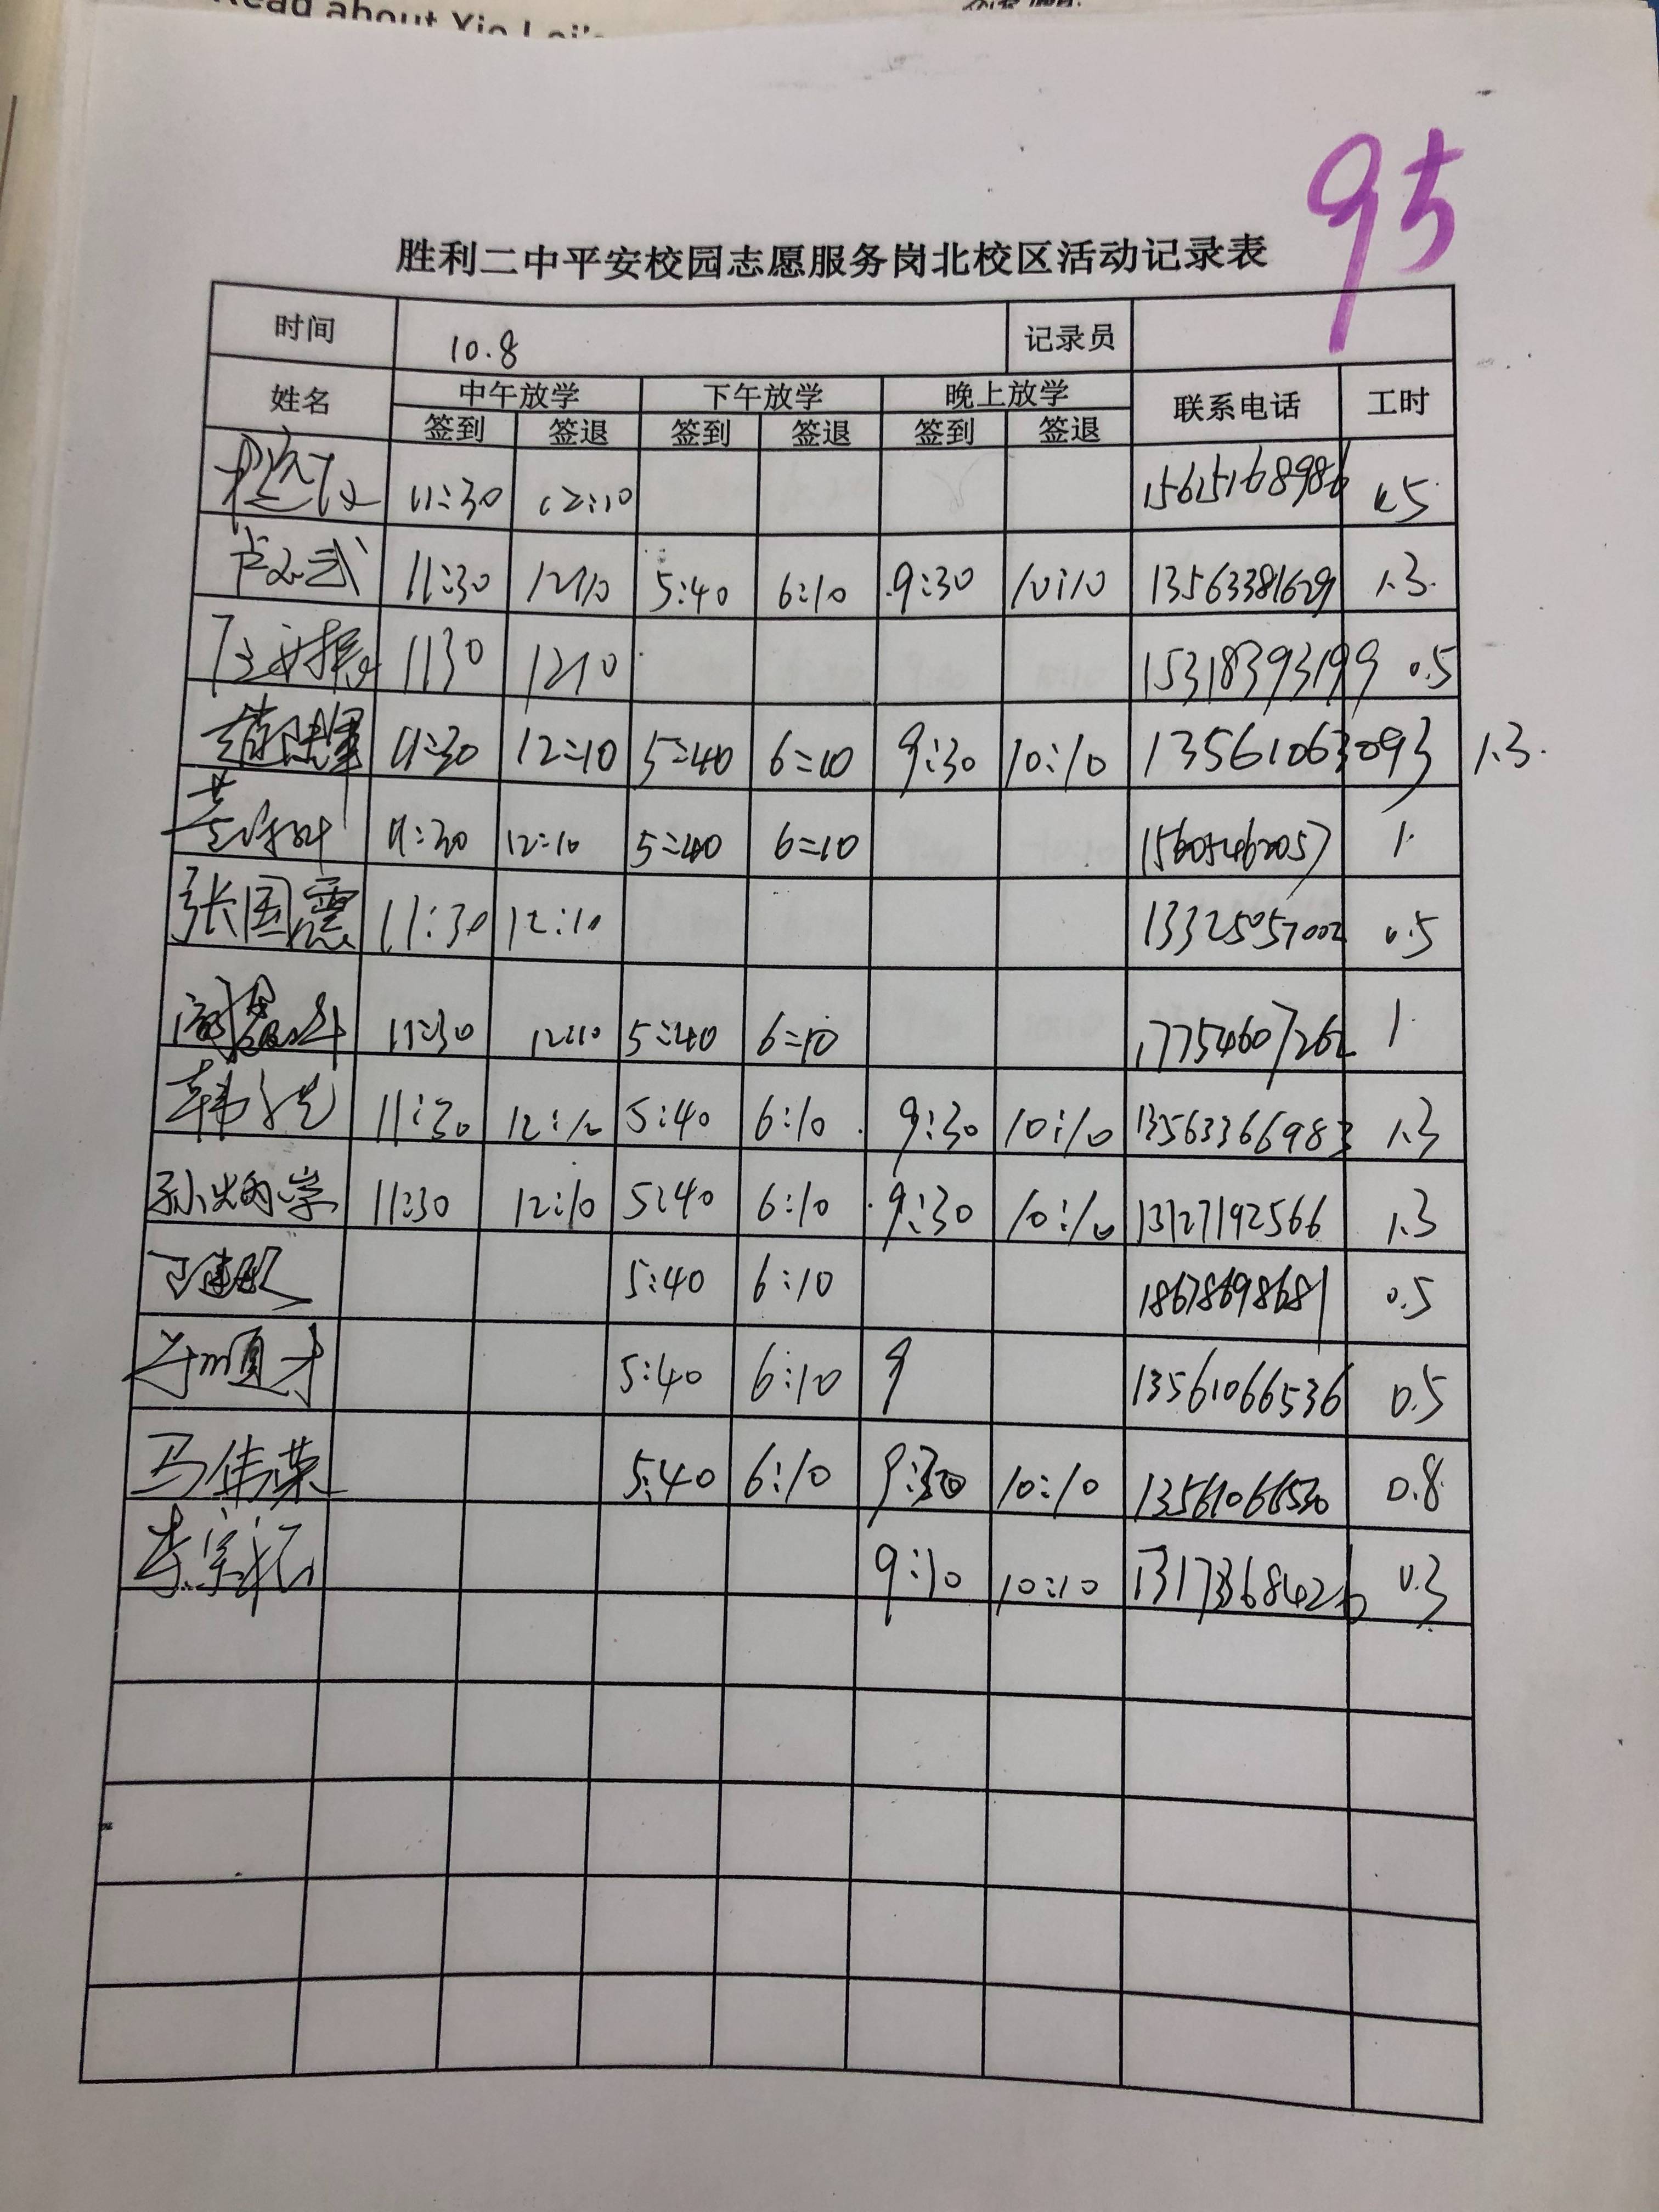 Read about Xie Lei's
95
胜利二中平安校园志愿服务岗北校区活动记录表
时间 10.8 记录员
姓名 中午放学 下午放学 晚上放学 联系电话 工时
签到 签退 签到 签退 签到 签退
11:30 12:10 15615168986 0.5
11:30 12:10 5:40 6:10 9:30 10:10 13563381629 1.3
1130 1210 15318393199 0.5
11:30 12:10 5:40 6:10 9:30 10:10 13561063093 1.3
11:30 12:10 5:40 6:10 15605462057 1
张国震 11:30 12:10 13325057002 0.5
11:30 12:10 5:40 6:10 17754607262 1
11:30 12:10 5:40 6:10 9:30 10:10 13563366983 1.3
11:30 12:10 5:40 6:10 9:30 10:10 13127192566 1.3
5:40 6:10 18678698681 0.5
5:40 6:10 9 13561066536 0.5
马伟荣 5:40 6:10 9:30 10:10 0.8
9:10 10:10 0.3